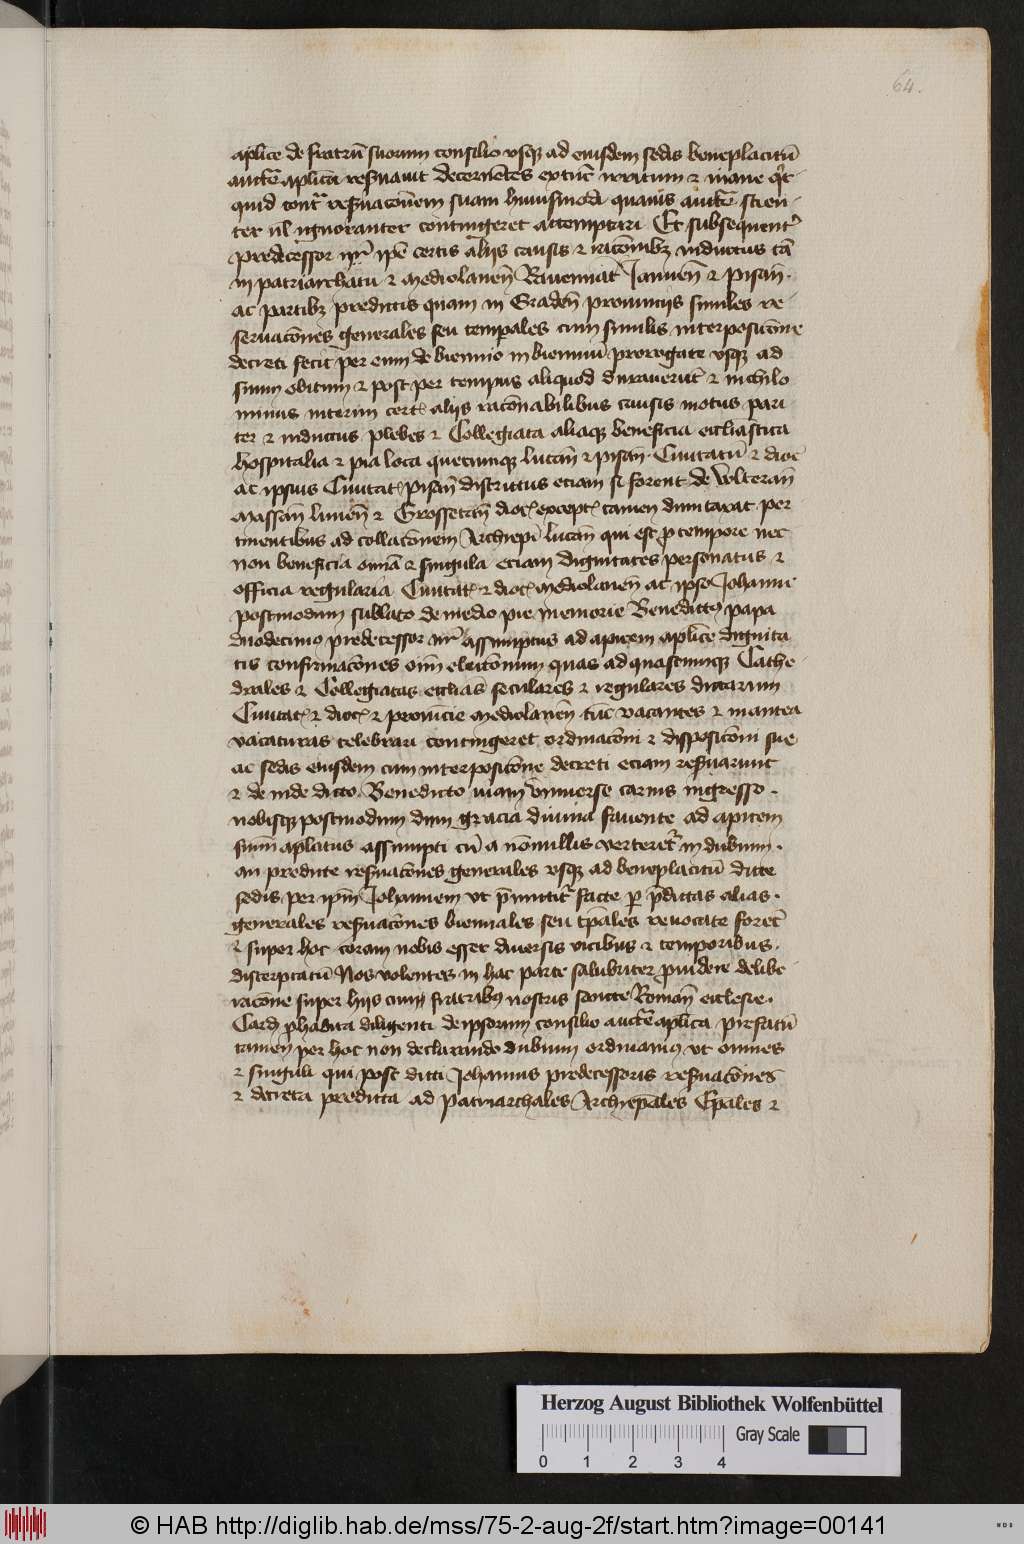 64.
aplice de fratrū suorum consilio vsqȝ ad eiusdem sedis beneplacitū
auctē aplica reseruauit decernētes extūc irritum ⁊ inane q̄c
quid cont̄ reseruacōnem suam huiusmodi quauis auctē scien
ter ul ignoranter contingeret attemptari Et subsequent̄
predecessor nr̄ ip̄e certis alijs causis ⁊ racōnibȝ inductus tā
in patriarchatu ⁊ mediolanen̄ Rauennat̄ Januen̄ ⁊ Pisan̄
ac partibȝ predictis quam in Graden̄ prouincijs similes re
seruacōnes generales seu temporales cum similis interposicōne
decreti fecit per eum de biennio in bienniū prorogate vsqȝ ad
suum obitum ⁊ post per tempus aliquod durauerūt ⁊ nichilo
minus interim cert̄ alijs racōnabilibus causis motus pari
ter ⁊ inductus plebes ⁊ Collegiata aliaqȝ beneficia eccliastica
hospitalia ⁊ pia loca quecumqȝ lucan̄ ⁊ pisan̄ Ciuitatū ⁊ dioc̄
ac ipsius Ciuitat̄ pisan̄ districtus eciam si forent de Wlteran̄
Massan̄ lunen̄ ⁊ Grossetan̄ dioc̄ except̄ tamen dumtaxat per
tinentibus ad collacōnem Archiepī lucan̄ qui est p̄ tempore nec
non beneficia omīa ⁊ singula eciam dignitates personatus ⁊
officia regularia Ciuitat̄ ⁊ dioc̄ mediolanen̄ ac ipso Johanne
postmodum sublato de medio pie memorie Benedictꝰ papa
duodecimo predecessor nr̄ assumptus ad apicem aplice dignita
tis confirmacōnes oīm eleccōnum quas ad quascumqȝ Cathe
drales ⁊ Collegiatas eccliās seculares ⁊ regulares dictarum
Ciuitat̄ ⁊ dioc̄ ⁊ prouīcie mediolanen̄ tūc vacantes ⁊ inantea
vacaturas celebrari contingeret ordinacōni ⁊ disposicōni sue
ac sedis eiusdem cum interposicōne decreti eciam reseruarunt
⁊ de inde dicto Benedicto viam vniuerse carnis ingresso
nobisqȝ postmodum dum gracia diuina fauente ad apicem
summi aplatus assumpti cū a nōnullis verteret̄ in dubium
an predicte reseruacōnes generales vsqȝ ad beneplacitū dicte
sedis per ip̄m Johannem vt p̄mittit̄ facte per p̄dictas alias
generales reseruacōnes biennales seu tp̄ales reuocate forēt
⁊ super hoc coram nobis esset diuersis vicibus ⁊ temporibus
disceptatū Nos volentes in hac parte salubriter prouidere delibe
racōne super hijs cum fratribꝰ nostris sancte Roman̄ ecclesie
Card̄ prehabita diligenti de ipsorum consilio auctē aplica prefatū
tamen per hoc non declarando dubium ordinamꝰ vt omnes
⁊ singuli qui post dicti Johannis predecessoris reseruacōnes
⁊ decreta predicta ad Patriarchales Archiep̄ales Ep̄ales ⁊
Herzog August Bibliothek Wolfenbüttel
Gray Scale
0 1 2 3 4
© HAB http://diglib.hab.de/mss/75-2-aug-2f/start.htm?image=00141